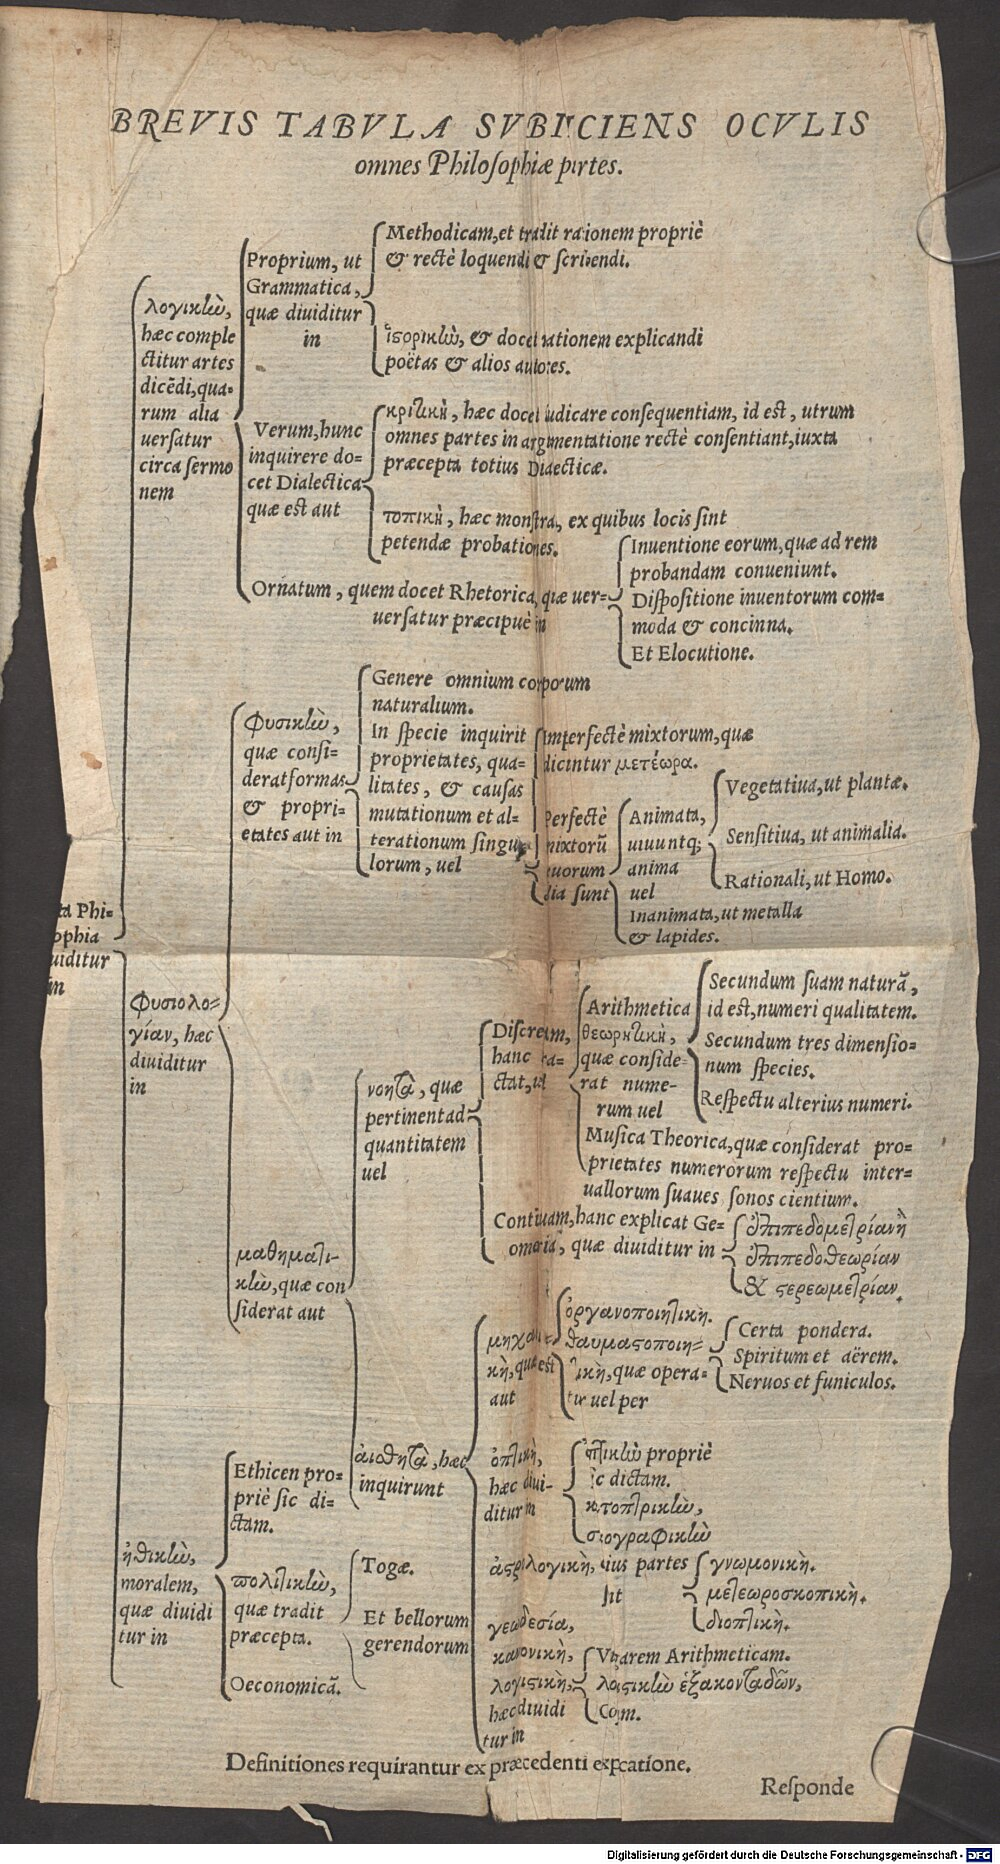 BREVIS TABVLA SVBIICIENS OCVLIS
omnes Philosophiæ partes.
Methodicam, et tradit rationem propriè
& rectè loquendi & scribendi.
Proprium, ut
Grammatica,
quæ diuiditur
in
ἱστορικὴν, & docet rationem explicandi
poëtas & alios autores.
λογικὴν,
hæc comple
ctitur artes
dicēdi, qua-
rum alia
uersatur
circa sermo
nem
Verum, hunc
inquirere do=
cet Dialectica
quæ est aut
κριτικὴ, hæc docet iudicare consequentiam, id est, utrum
omnes partes in argumentatione rectè consentiant, iuxta
præcepta totius Dialecticæ.
τοπικὴ, hæc monstrat, ex quibus locis sint
petendæ probationes.
Ornatum, quem docet Rhetorica, quæ uer=
uersatur præcipuè in
Inuentione eorum, quæ ad rem
probandam conueniunt.
Dispositione inuentorum com=
moda & concinna.
Et Elocutione.
ta Phi=
ophia
uiditur
in
φυσιολο=
γίαν, hæc
diuiditur
in
φυσικὴν,
quæ consi-
derat formas
& propri-
etates aut in
Genere omnium corporum
naturalium.
In specie inquirit
proprietates, qua-
litates, & causas
mutationum et al-
terationum singu
lorum, uel
Imperfectè mixtorum, quæ
dicuntur μετέωρα.
Perfectè
mixtorū
quorum
alia sunt
Animata,
uiuuntq;
anima
uel
Inanimata, ut metalla
& lapides.
Vegetatiua, ut plantæ.
Sensitiua, ut animalia.
Rationali, ut Homo.
μαθηματι-
κὴν, quæ con
siderat aut
νοητὰ, quæ
pertinent ad
quantitatem
uel
Discretam,
hanc tra=
ctat, uel
Arithmetica
θεωρητικὴ,
quæ conside-
rat nume-
rum uel
Secundum suam naturā,
id est, numeri qualitatem.
Secundum tres dimensio=
num species.
Respectu alterius numeri.
Musica Theorica, quæ considerat pro=
prietates numerorum respectu inter=
uallorum suaues sonos cientium.
Continuam, hanc explicat Ge=
ometria, quæ diuiditur in
ἐπιπεδομετρίαν ἢ
ἐπιπεδοθεωρίαν
& στερεωμετρίαν.
αἰσθητὰ, hæc
inquirunt
μηχανι=
κὴ, quæ est
aut
ὀργανοποιητικὴ.
θαυμαστοποιη=
τικὴ, quæ opera=
tur uel per
Certa pondera.
Spiritum et aërem.
Neruos et funiculos.
ὀπτικὴ,
hæc diui-
ditur in
ὀπτικὴν propriè
sic dictam.
κατοπτρικὴν,
σκιογραφικὴν
ἀστρολογικὴ, eius partes
sūt
γνωμονικὴ.
μετεωροσκοπικὴ.
διοπτικὴ.
γεωδεσία,
κανονικὴ,
λογιστικὴ,
hæc diuidi
tur in
Vulgarem Arithmeticam.
λογιστικὴν ἑξακονταδῶν,
ἠθικὴν,
moralem,
quæ diuidi
tur in
Ethicen pro=
priè sic di-
ctam.
πολιτικὴν,
quæ tradit
præcepta.
Togæ.
Et bellorum
gerendorum
Oeconomicā.
Definitiones requirantur ex præcedenti explicatione.
Responde
Digitalisierung gefördert durch die Deutsche Forschungsgemeinschaft - DFG